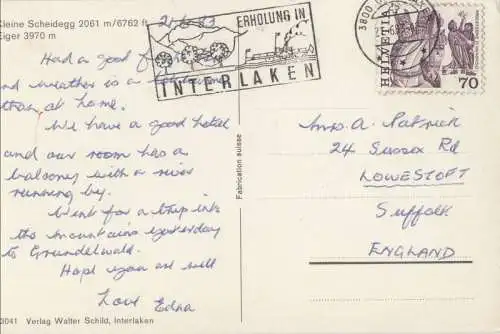 Kleine Scheidegg 2061 m/6762 ft.
Eiger 3970 m
21-6-83
ERHOLUNG IN
INTERLAKEN
3800
HELVETIA
70
Had a good
and weather is a
than at home.
We have a good hotel
and our room has a
balcony with a river
running by.
Went for a trip into
the mountains yesterday
to Grundelwald.
Hope you are well
Love Edna
Fabrication suisse
Mrs. A. Patrick
24 Sussex Rd
LOWESTOFT
Suffolk
ENGLAND
3041 Verlag Walter Schild, Interlaken